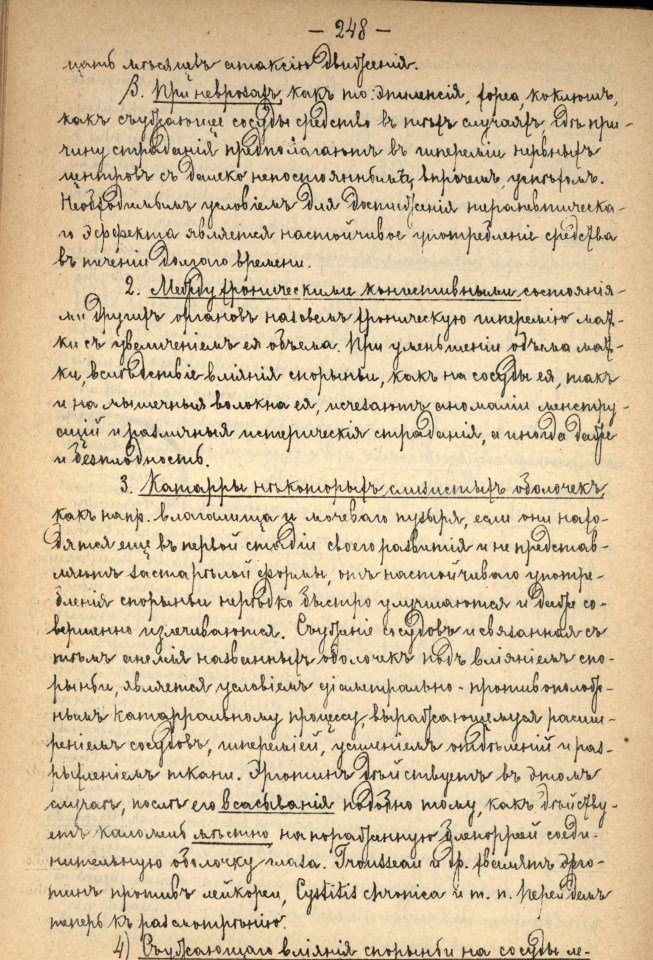 — 248 —
цать мѣсяцевъ атаксію движенія.
3. При неврозахъ, какъ то: эпилепсія, хорея, коклюшъ,
какъ съуживающее сосуды средство въ тѣхъ случаяхъ, гдѣ при-
чину страданій предполагаютъ въ гипереміи нервныхъ
центровъ съ далеко непостояннымъ, впрочемъ, успѣхомъ.
Необходимымъ условіемъ для достиженія терапевтическа-
го эффекта является настойчивое употребленіе средства
въ теченіи долгаго времени.
2. Между хроническими конгестивными состоянія-
ми другихъ органовъ назовемъ хроническую гиперемію мат-
ки съ увеличеніемъ ея объема. При уменьшеніи объема мат-
ки, вслѣдствіе вліянія спорыньи, какъ на сосуды ея, такъ
и на мышечныя волокна ея, исчезаютъ аномаліи менстру-
ацій и различныя истерическія страданія, а иногда даже
и безплодность.
3. Катарры нѣкоторыхъ слизистыхъ оболочекъ,
какъ напр. влагалища и мочеваго пузыря, если они нахо-
дятся еще въ первой стадіи своего развитія и не представ-
ляютъ застарѣлой формы, отъ настойчиваго употре-
бленія спорыньи нерѣдко быстро улучшаются и даже со-
вершенно излечиваются. Съуженіе сосудовъ и связанная съ
тѣмъ анемія названныхъ оболочекъ подъ вліяніемъ спо-
рыньи, является условіемъ діаметрально-противополож-
нымъ катарральному процессу, выражающемуся расши-
реніемъ сосудовъ, гипереміей, усиленіемъ отдѣленій и раз-
рыхленіемъ ткани. Эрготинъ дѣйствуетъ въ этомъ
случаѣ, послѣ его всасыванія подобно тому, какъ дѣйству-
етъ каломель мѣстно на пораженную бленорреей соеди-
нительную оболочку глаза. Trousseau и др. хвалятъ эрго-
тинъ противъ лейкореи, Cystitis chronica и т. п. Перейдемъ
теперь къ разсмотрѣнію.
4) Съужающаго вліянія спорыньи на сосуды ле-